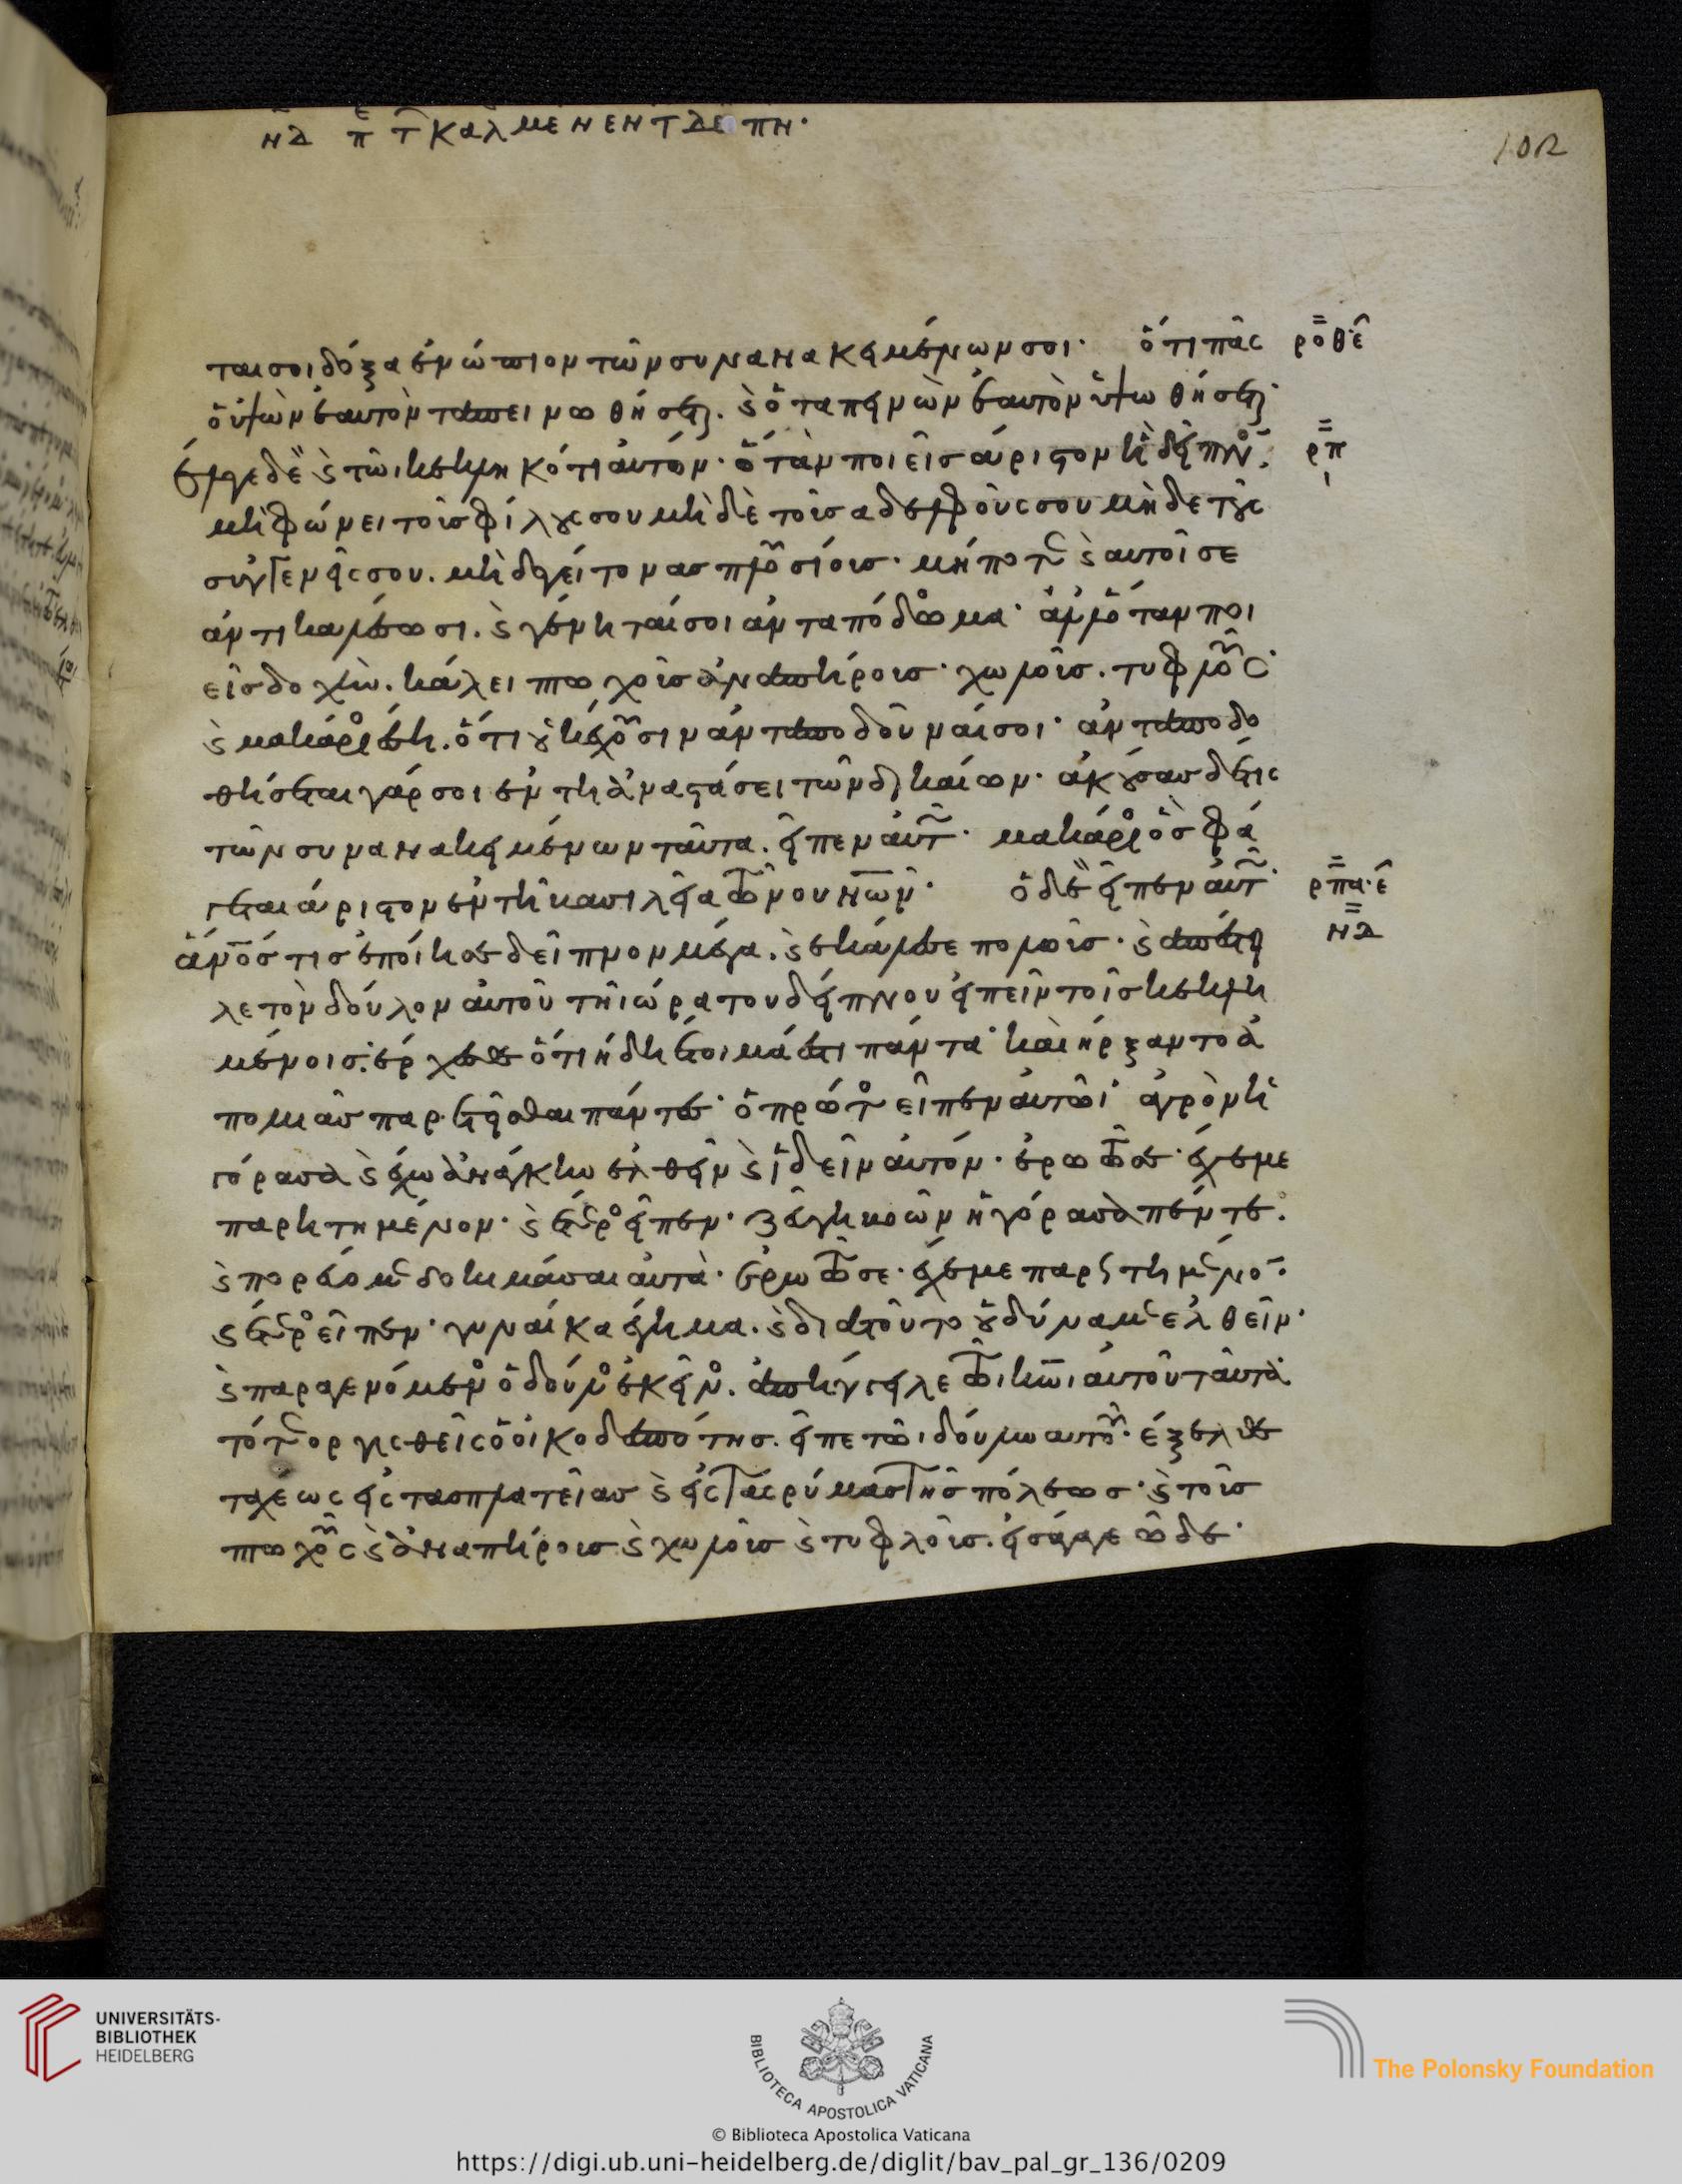 ΝΔ π τ καλ μεν εν τ δειπν·
102
ται σοι δόξα ἐνώπιον τῶν συνανακειμένων σοι· ὅτι πᾶς ροθ ε
ὁ ὑψῶν ἑαυτὸν ταπεινωθήσεται. καὶ ὁ ταπεινῶν ἑαυτὸν ὑψωθήσεται·
ἔλεγε δὲ καὶ τῶι κεκληκότι αὐτόν· ὅταν ποιεῖσ ἄριστον ἢ δεῖπνον. ρπ ι
μὴ φώνει τοὺσ φίλους σου μὴ δὲ τοὺσ αδελφούς σου μὴ δε τοὺς
συγγενεῖς σου. μὴ δὲ γείτονασ πλουσίουσ· μήποτε καὶ αὐτοί σε
ἀντικαλέσωσι. καὶ γένηται σοι ἀνταπόδωμα· ἀλλ' ὅταν ποι
εῖσ δοχὴν. κάλει πτωχοὺσ ἀναπήρουσ· χωλοὺσ. τυφλοὺσ·
καὶ μακάριος ἔση. ὅτι οὐκ ἔχουσιν ἀνταποδοῦναί σοι· ἀνταποδο
θήσεται γάρ σοι ἐν τῆ ἀναστάσει τῶν δικαίων. ἀκούσασ δέ τις
τῶν συνανακειμένων ταῦτα. εἶπεν αὐτῶ· μακάριος ὃσ φά
γεται άριστον ἐν τῆ βασιλεία τῶν οὐνῶν· ὁ δὲ εἶπεν αὐτῶ· ρπα ε
ἄνος τισ ἐποίησε δεῖπνον μέγα. καὶ ἐκάλεσε πολλοὺσ· καὶ ἀπέστει ΝΔ
λε τὸν δοῦλον αὐτοῦ τῆι ώρα του δείπνου εἰπεῖν τοῖσ κεκλη
μένοισ· ἔρχεσθε ὅτι ἤδη ἕτοιμά ἐστι πάντα· καὶ ήρξαντο ἀ
πο μιᾶσ παραιτεῖσθαι πάντεσ· ὁ πρῶτος εἶπεν αὐτῶι· ἀγρὸν ἠ
γόρασα καὶ ἔχω ἀνάγκην ἐλθεῖν καὶ ἰδεῖν αὐτόν. ἐρωτῶ σε· ἔχε με
παρητημένον· καὶ ἕτερος εἶπεν· ζεύγη βοῶν ἠγόρασα πέντε.
καὶ πορεύομαι δοκιμάσαι αὐτὰ· ἐρωτῶ σε· ἔχε με παρητημένον·
καὶ ἕτερος εἶπεν· γυναίκα έγημα. καὶ διατοῦτο οὐ δύναμαι ελθεῖν·
καὶ παραγενόμενος ὁ δοῦλος ἐκεῖνος. ἀπήγγειλε τῶι κωι αὐτοῦ ταῦτα·
τότε οργισθεὶς ὁ οἰκοδεσπότησ. εἶπε τῶι δούλω αυτοῦ· έξελθε
ταχέως εἰς τασ πλατείασ καὶ εἰς τὰς ρύμασ τῆσ πόλεωσ· καὶ τοὺσ
πτωχοὺς καὶ ἀναπήρουσ καὶ χωλοὺσ καὶ τυφλοὺσ. εἰσάγαγε ὧδε·
UNIVERSITÄTS-
BIBLIOTHEK
HEIDELBERG
BIBLIOTECA APOSTOLICA VATICANA
The Polonsky Foundation
© Biblioteca Apostolica Vaticana
https://digi.ub.uni-heidelberg.de/diglit/bav_pal_gr_136/0209